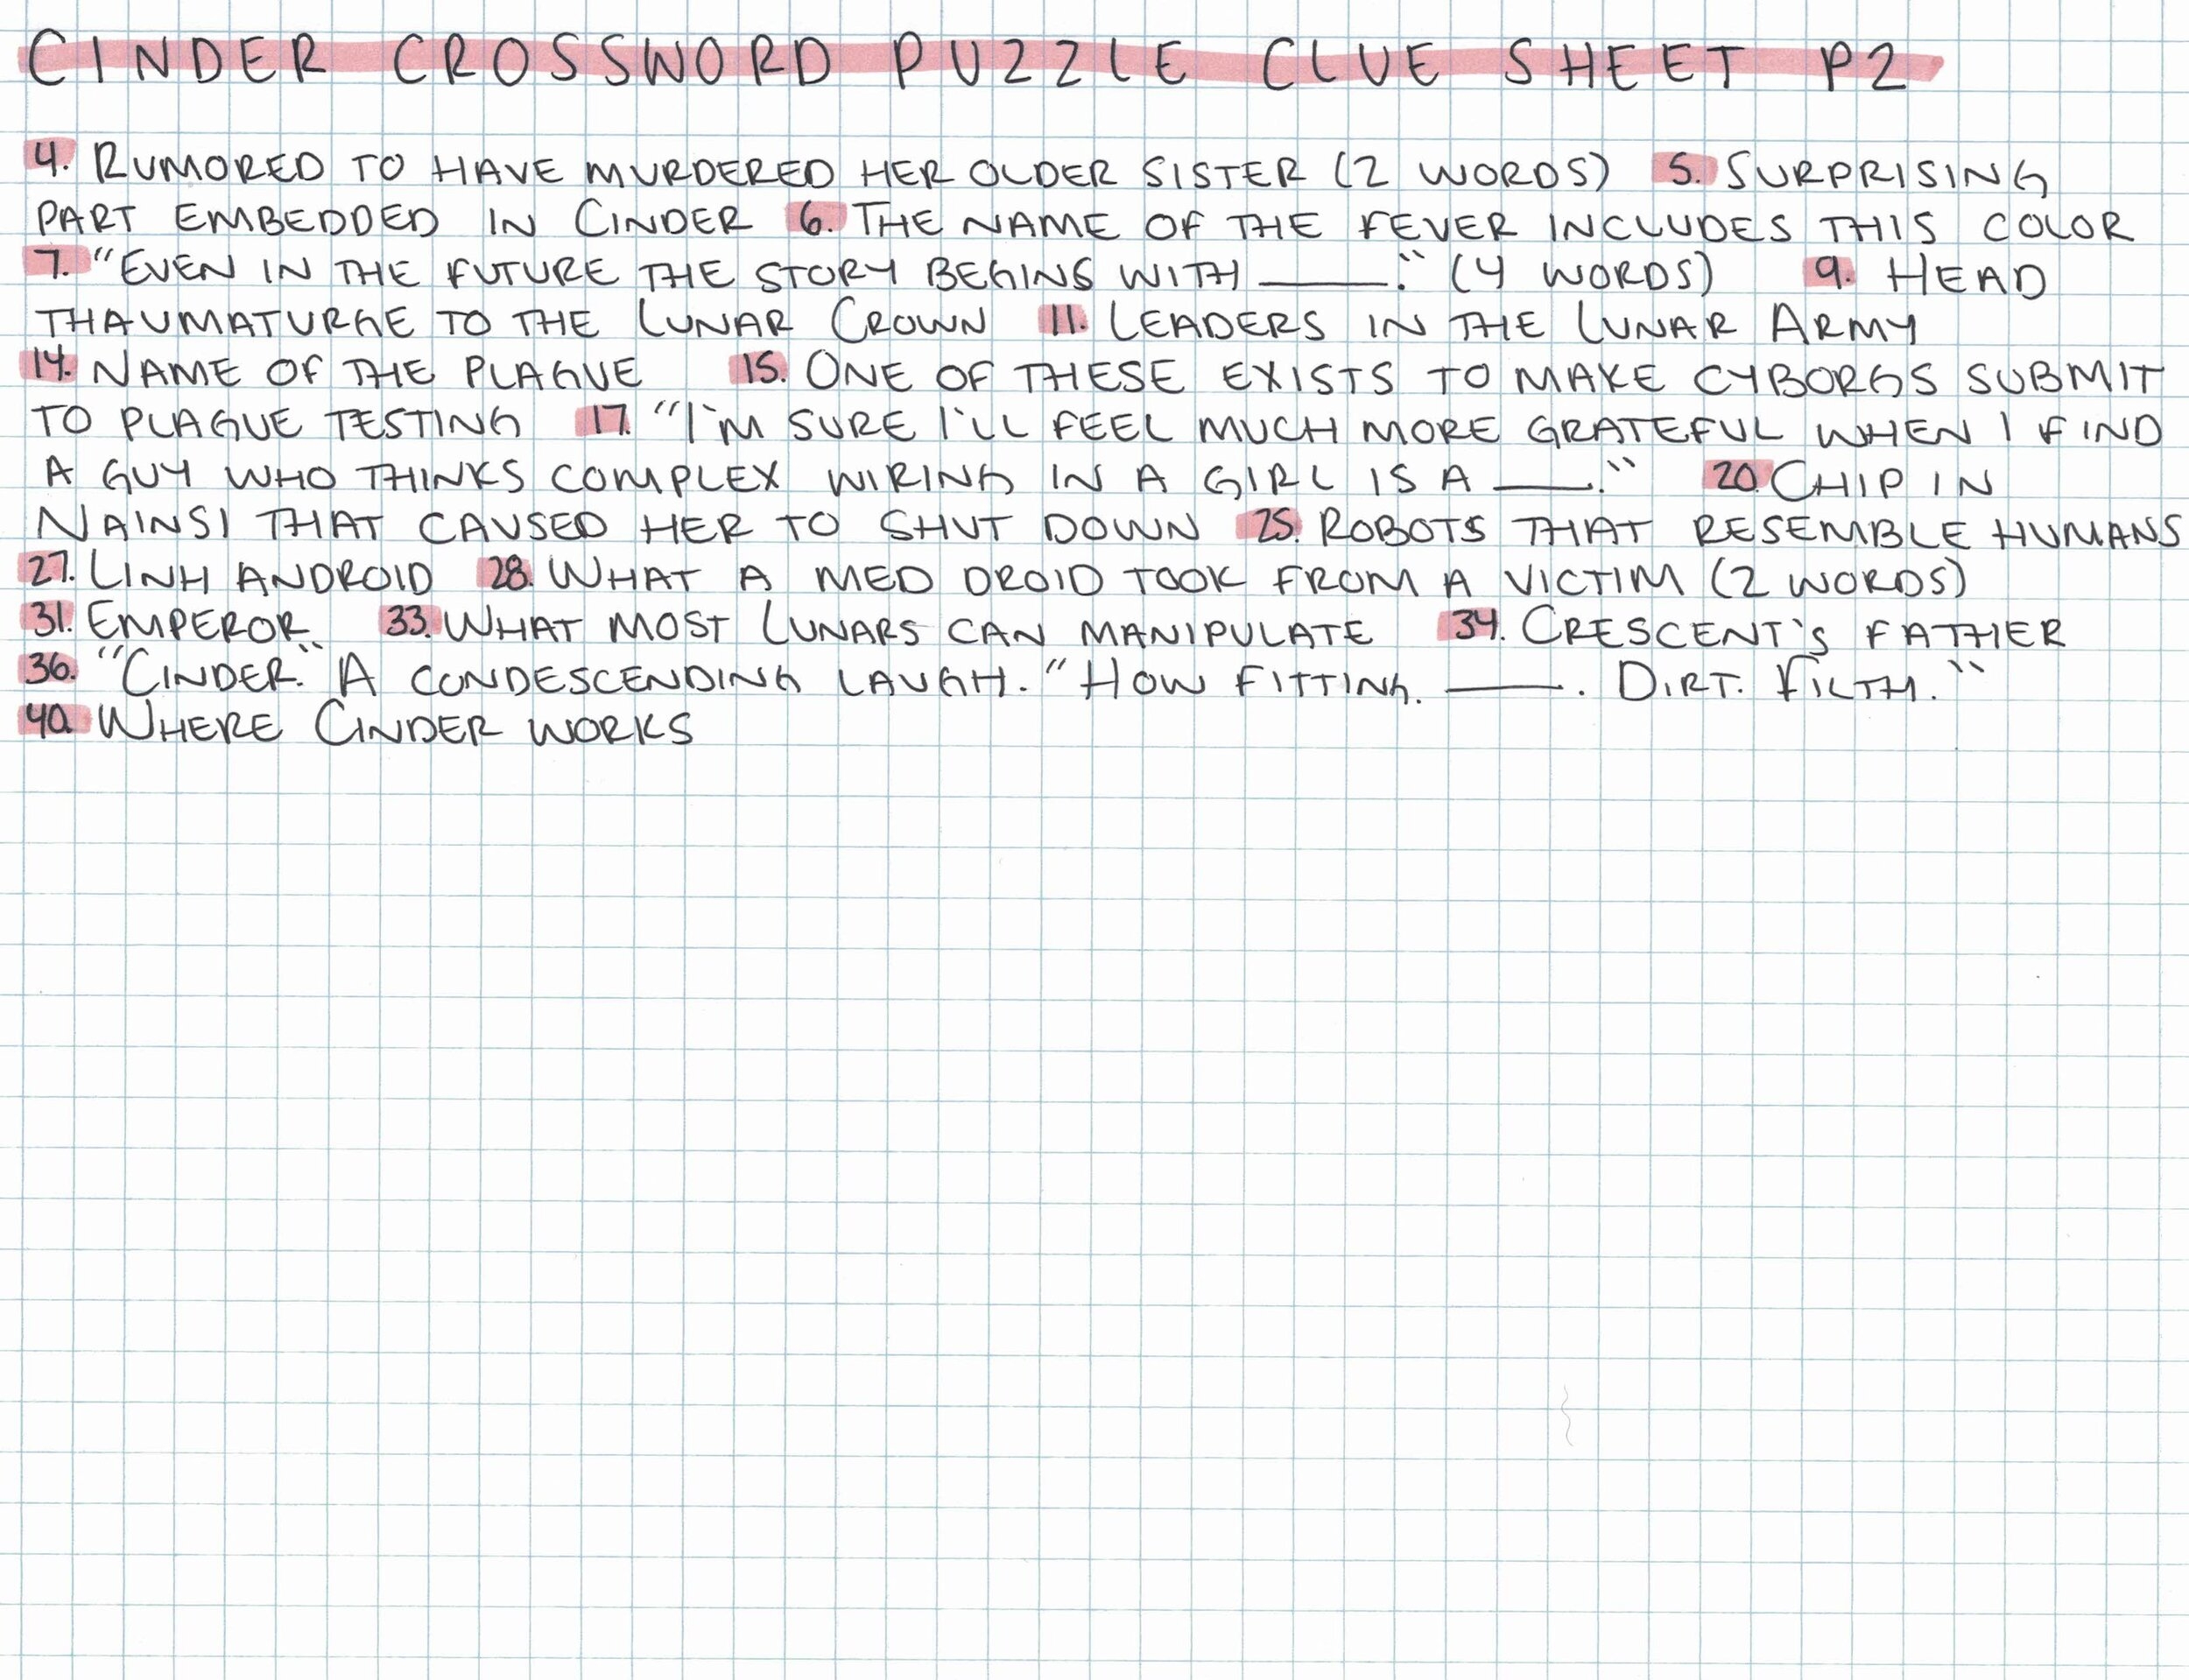 CINDER CROSSWORD PUZZLE CLUE SHEET P2
4. RUMORED TO HAVE MURDERED HER OLDER SISTER (2 WORDS) 5. SURPRISING
PART EMBEDDED IN CINDER 6. THE NAME OF THE FEVER INCLUDES THIS COLOR
7. "EVEN IN THE FUTURE THE STORY BEGINS WITH ______." (4 WORDS) 9. HEAD
THAUMATURGE TO THE LUNAR CROWN 11. LEADERS IN THE LUNAR ARMY
14. NAME OF THE PLAGUE 15. ONE OF THESE EXISTS TO MAKE CYBORGS SUBMIT
TO PLAGUE TESTING 17. "I'M SURE I'LL FEEL MUCH MORE GRATEFUL WHEN I FIND
A GUY WHO THINKS COMPLEX WIRING IN A GIRL IS A ____." 20. CHIP IN
NAINSI THAT CAUSED HER TO SHUT DOWN 25. ROBOTS THAT RESEMBLE HUMANS
27. LINH ANDROID 28. WHAT A MED DROID TOOK FROM A VICTIM (2 WORDS)
31. EMPEROR 33. WHAT MOST LUNARS CAN MANIPULATE 34. CRESCENT'S FATHER
36. "CINDER." A CONDESCENDING LAUGH. "HOW FITTING. _____. DIRT. FILTH."
40. WHERE CINDER WORKS